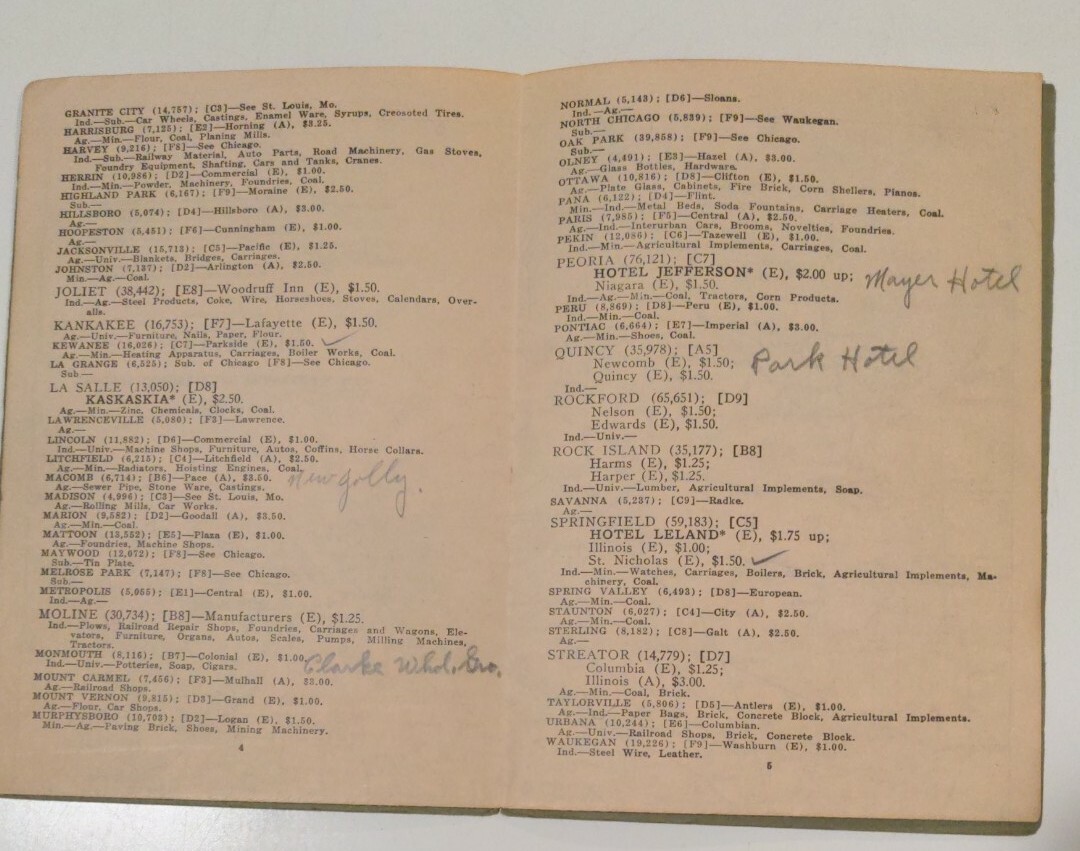 GRANITE CITY (14,757); [C3]—See St. Louis, Mo.
Ind.—Sub.—Car Wheels, Castings, Enamel Ware, Syrups, Creosoted Tires.
HARRISBURG (7,125); [E2]—Horning (A), $3.25.
Ag.—Min.—Flour, Coal, Planing Mills.
HARVEY (9,216); [F8]—See Chicago.
Ind.—Sub.—Railway Material, Auto Parts, Road Machinery, Gas Stoves,
Foundry Equipment, Shafting, Cars and Tanks, Cranes.
HERRIN (10,986); [D2]—Commercial (E), $1.00.
Ind.—Min.—Powder, Machinery, Foundries, Coal.
HIGHLAND PARK (6,167); [F9]—Moraine (E), $2.50.
Sub.—
HILLSBORO (5,074); [D4]—Hillsboro (A), $3.00.
Ag.—
HOOPESTON (5,451); [F6]—Cunningham (E), $1.00.
Ag.—
JACKSONVILLE (15,713); [C5]—Pacific (E), $1.25.
Ag.—Univ.—Blankets, Bridges, Carriages.
JOHNSTON (7,137); [D2]—Arlington (A), $2.50.
Min.—Ag.—Coal.
JOLIET (38,442); [E8]—Woodruff Inn (E), $1.50.
Ind.—Ag.—Steel Products, Coke, Wire, Horseshoes, Stoves, Calendars, Over-
alls.
KANKAKEE (16,753); [F7]—Lafayette (E), $1.50.
Ag.—Univ.—Furniture, Nails, Paper, Flour.
KEWANEE (16,026); [C7]—Parkside (E), $1.50.
Ag.—Min.—Heating Apparatus, Carriages, Boiler Works, Coal.
LA GRANGE (6,525); Sub. of Chicago [F8]—See Chicago.
Sub—
LA SALLE (13,050); [D8]
KASKASKIA* (E), $2.50.
Ag.—Min.—Zinc, Chemicals, Clocks, Coal.
LAWRENCEVILLE (5,080); [F3]—Lawrence.
Ag.—
LINCOLN (11,882); [D6]—Commercial (E), $1.00.
Ind.—Univ.—Machine Shops, Furniture, Autos, Coffins, Horse Collars.
LITCHFIELD (6,215); [C4]—Litchfield (A), $2.50.
Ag.—Min.—Radiators, Hoisting Engines, Coal.
MACOMB (6,714); [B6]—Pace (A), $3.50.
Ag.—Sewer Pipe, Stone Ware, Castings.
MADISON (4,996); [C3]—See St. Louis, Mo.
Ag.—Rolling Mills, Car Works.
MARION (9,582); [D2]—Goodall (A), $3.50.
Ag.—Min.—Coal.
MATTOON (13,552); [E5]—Plaza (E), $1.00.
Ag.—Foundries, Machine Shops.
MAYWOOD (12,072); [F8]—See Chicago.
Sub.—Tin Plate.
MELROSE PARK (7,147); [F8]—See Chicago.
Sub.—
METROPOLIS (5,055); [E1]—Central (E), $1.00.
Ind.—Ag.—
MOLINE (30,734); [B8]—Manufacturers (E), $1.25.
Ind.—Plows, Railroad Repair Shops, Foundries, Carriages and Wagons, Ele-
vators, Furniture, Organs, Autos, Scales, Pumps, Milling Machines,
Tractors.
MONMOUTH (8,116); [B7]—Colonial (E), $1.00. Clarke Whol. Gro.
Ind.—Univ.—Potteries, Soap, Cigars.
MOUNT CARMEL (7,456); [F3]—Mulhall (A), $3.00.
Ag.—Railroad Shops.
MOUNT VERNON (9,815); [D3]—Grand (E), $1.00.
Ag.—Flour, Car Shops.
MURPHYSBORO (10,703); [D2]—Logan (E), $1.50.
Min.—Ag.—Paving Brick, Shoes, Mining Machinery.
4
NORMAL (5,143); [D6]—Sloans.
Ind.—Ag.—
NORTH CHICAGO (5,839); [F9]—See Waukegan.
Sub.—
OAK PARK (39,858); [F9]—See Chicago.
Sub.—
OLNEY (4,491); [E3]—Hazel (A), $3.00.
Ag.—Glass Bottles, Hardware.
OTTAWA (10,816); [D8]—Clifton (E), $1.50.
Ag.—Plate Glass, Cabinets, Fire Brick, Corn Shellers, Pianos.
PANA (6,122); [D4]—Flint.
Min.—Ind.—Metal Beds, Soda Fountains, Carriage Heaters, Coal.
PARIS (7,985); [F5]—Central (A), $2.50.
Ag.—Ind.—Interurban Cars, Brooms, Novelties, Foundries.
PEKIN (12,086); [C6]—Tazewell (E), $1.00.
Ind.—Min.—Agricultural Implements, Carriages, Coal.
PEORIA (76,121); [C7]
HOTEL JEFFERSON* (E), $2.00 up; Mayer Hotel
Niagara (E), $1.50.
Ind.—Ag.—Min.—Coal, Tractors, Corn Products.
PERU (8,869); [D8]—Peru (E), $1.00.
Ind.—Min.—Coal.
PONTIAC (6,664); [E7]—Imperial (A), $3.00.
Ag.—Min.—Shoes, Coal.
QUINCY (35,978); [A5]
Newcomb (E), $1.50; Park Hotel
Quincy (E), $1.50.
Ind.—
ROCKFORD (65,651); [D9]
Nelson (E), $1.50;
Edwards (E), $1.50.
Ind.—Univ.—
ROCK ISLAND (35,177); [B8]
Harms (E), $1.25;
Harper (E), $1.25.
Ind.—Univ.—Lumber, Agricultural Implements, Soap.
SAVANNA (5,237); [C9]—Radke.
Ag.—
SPRINGFIELD (59,183); [C5]
HOTEL LELAND* (E), $1.75 up;
Illinois (E), $1.00;
St. Nicholas (E), $1.50.
Ind.—Min.—Watches, Carriages, Boilers, Brick, Agricultural Implements, Ma-
chinery, Coal.
SPRING VALLEY (6,493); [D8]—European.
Ag.—Min.—Coal.
STAUNTON (6,027); [C4]—City (A), $2.50.
Ag.—Min.—Coal.
STERLING (8,182); [C8]—Galt (A), $2.50.
Ag.—
STREATOR (14,779); [D7]
Columbia (E), $1.25;
Illinois (A), $3.00.
Ag.—Min.—Coal, Brick.
TAYLORVILLE (5,806); [D5]—Antlers (E), $1.00.
Ag.—Ind.—Paper Bags, Brick, Concrete Block, Agricultural Implements.
URBANA (10,244); [E6]—Columbian.
Ag.—Univ.—Railroad Shops, Brick, Concrete Block.
WAUKEGAN (19,226); [F9]—Washburn (E), $1.00.
Ind.—Steel Wire, Leather.
5